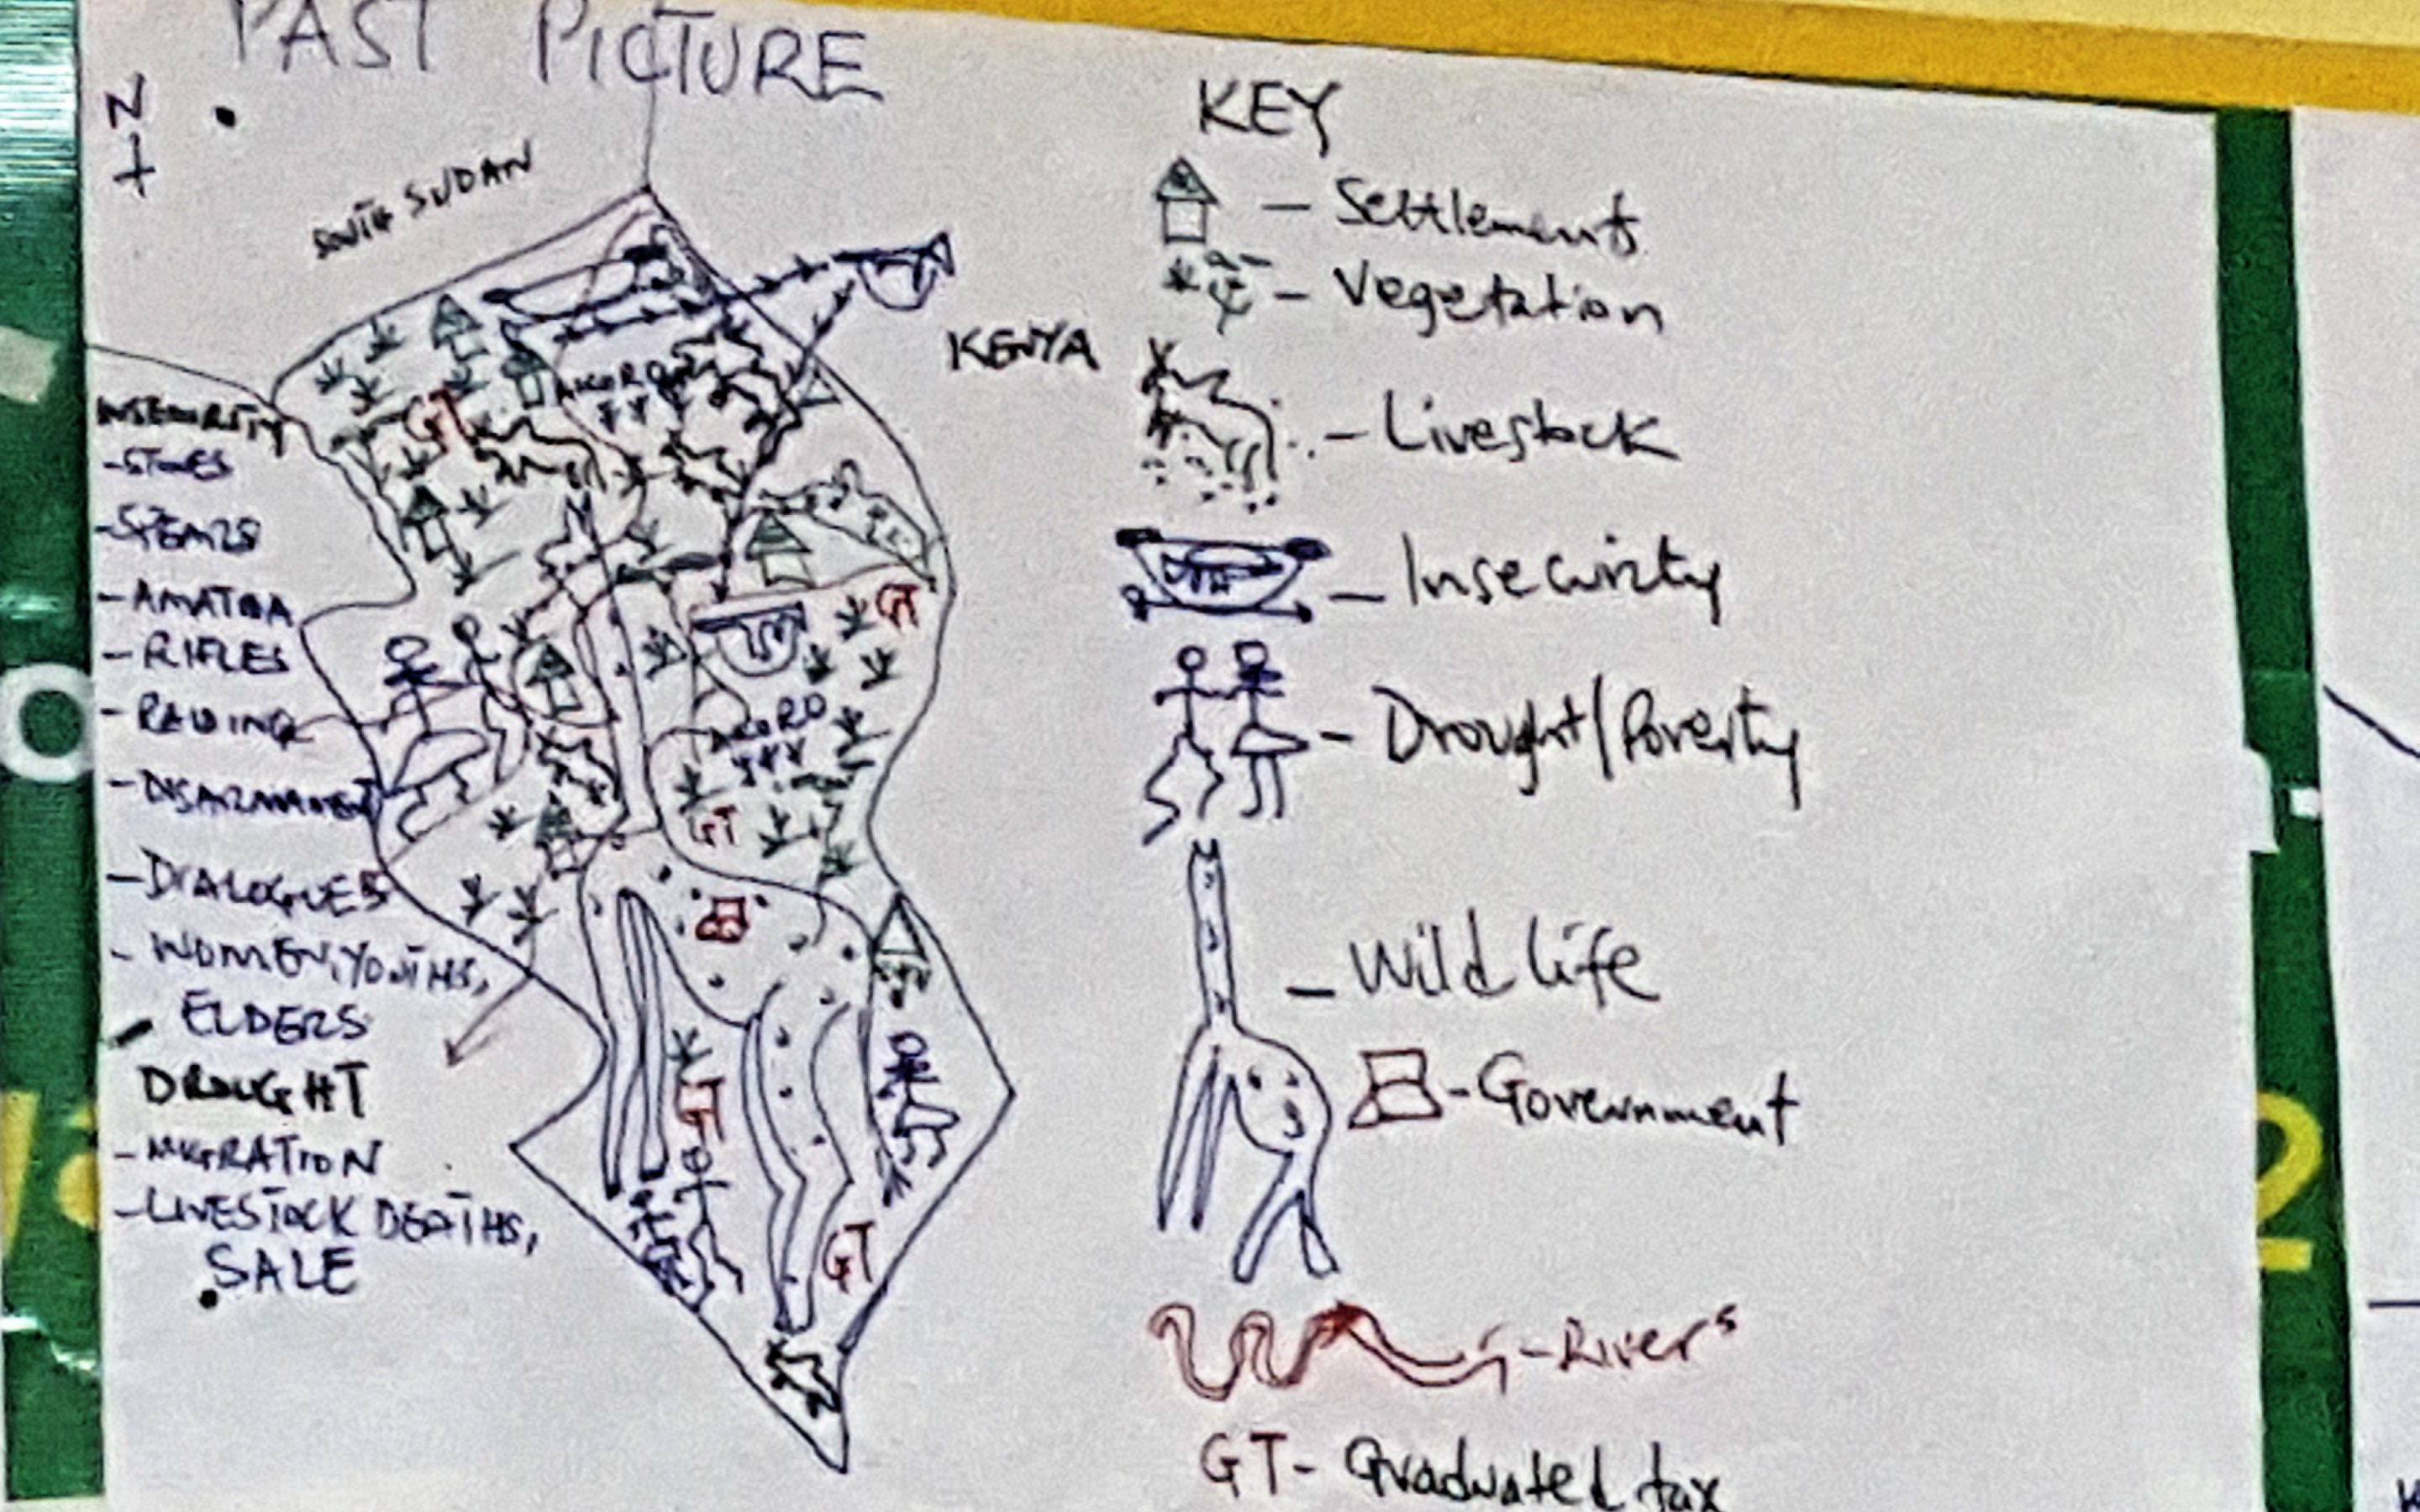 PAST PICTURE
N
SOUTH SUDAN
KENYA
AKORO
GT
GT
AKORO
GT
GT
GT
INSECURITY
- STONES
- SPEARS
- AMATIDA
- RIFLES
- RAIDING
- DISARMAMENT
- DIALOGUES
- WOMEN, YOUTHS,
ELDERS
DROUGHT
- MIGRATION
- LIVESTOCK DEATHS,
SALE
KEY
- Settlements
- Vegetation
- Livestock
- Insecurity
- Drought/Poverty
- Wild life
- Government
- Rivers
GT - Graduated tax
2